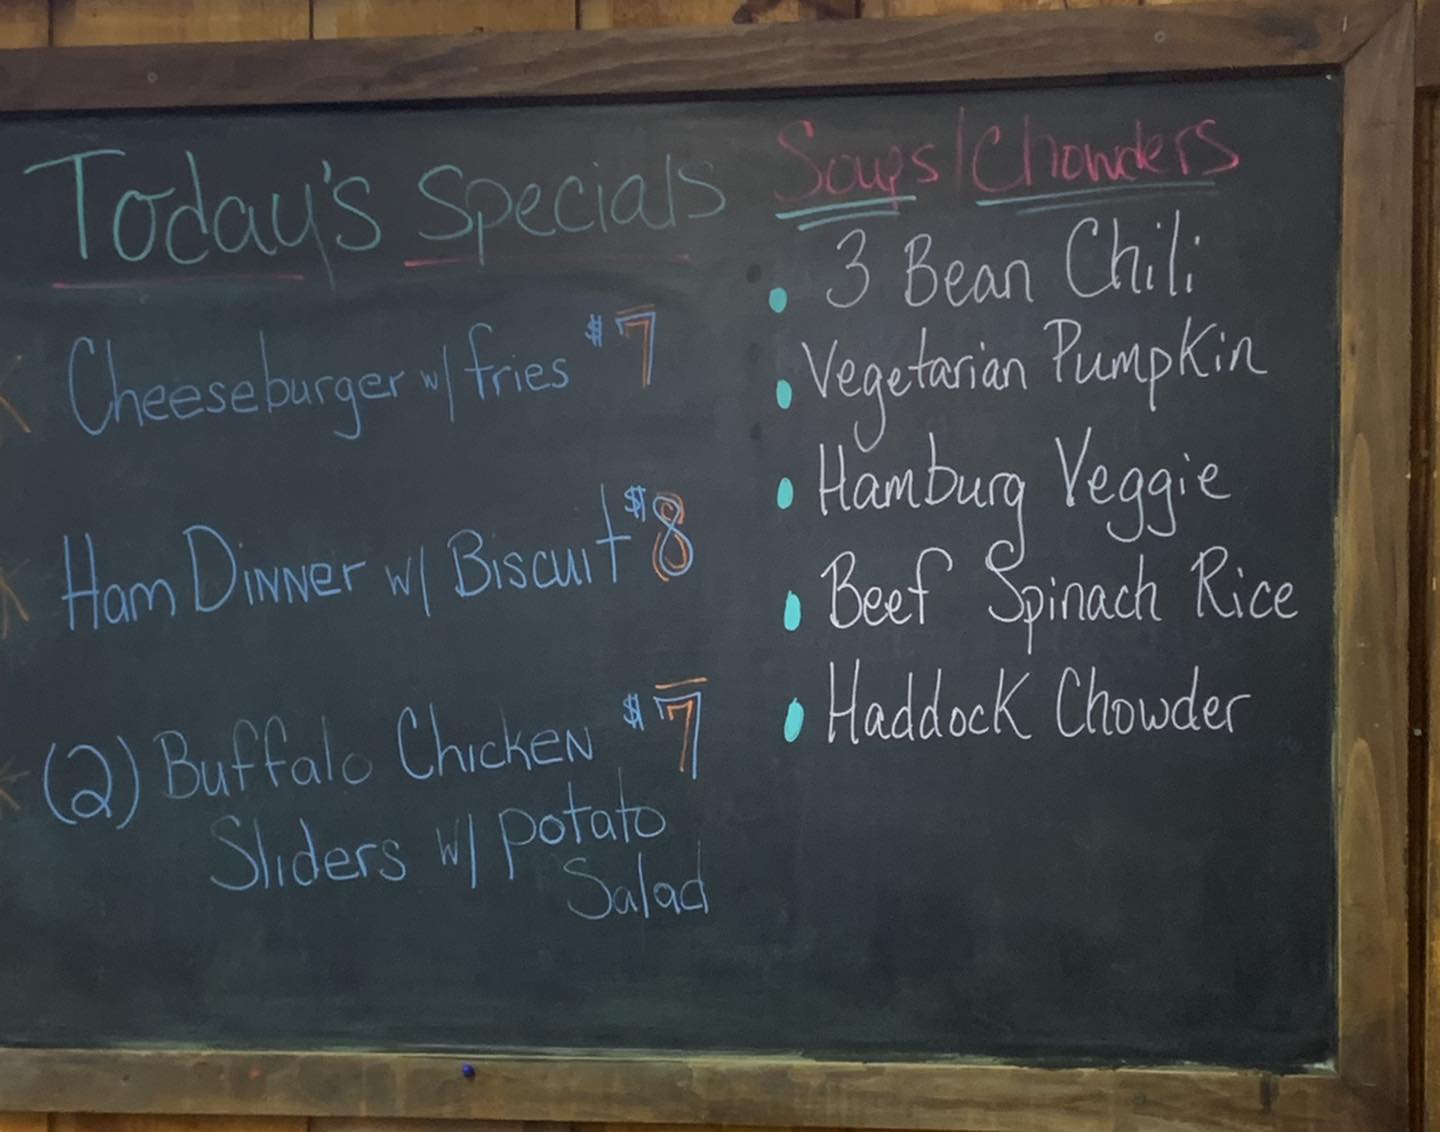 Today's Specials
Cheeseburger w/ fries $7
Ham Dinner w/ Biscuit $8
(2) Buffalo Chicken $7
Sliders w/ potato
Salad
Soups/Chowders
3 Bean Chili
Vegetarian Pumpkin
Hamburg Veggie
Beef Spinach Rice
Haddock Chowder